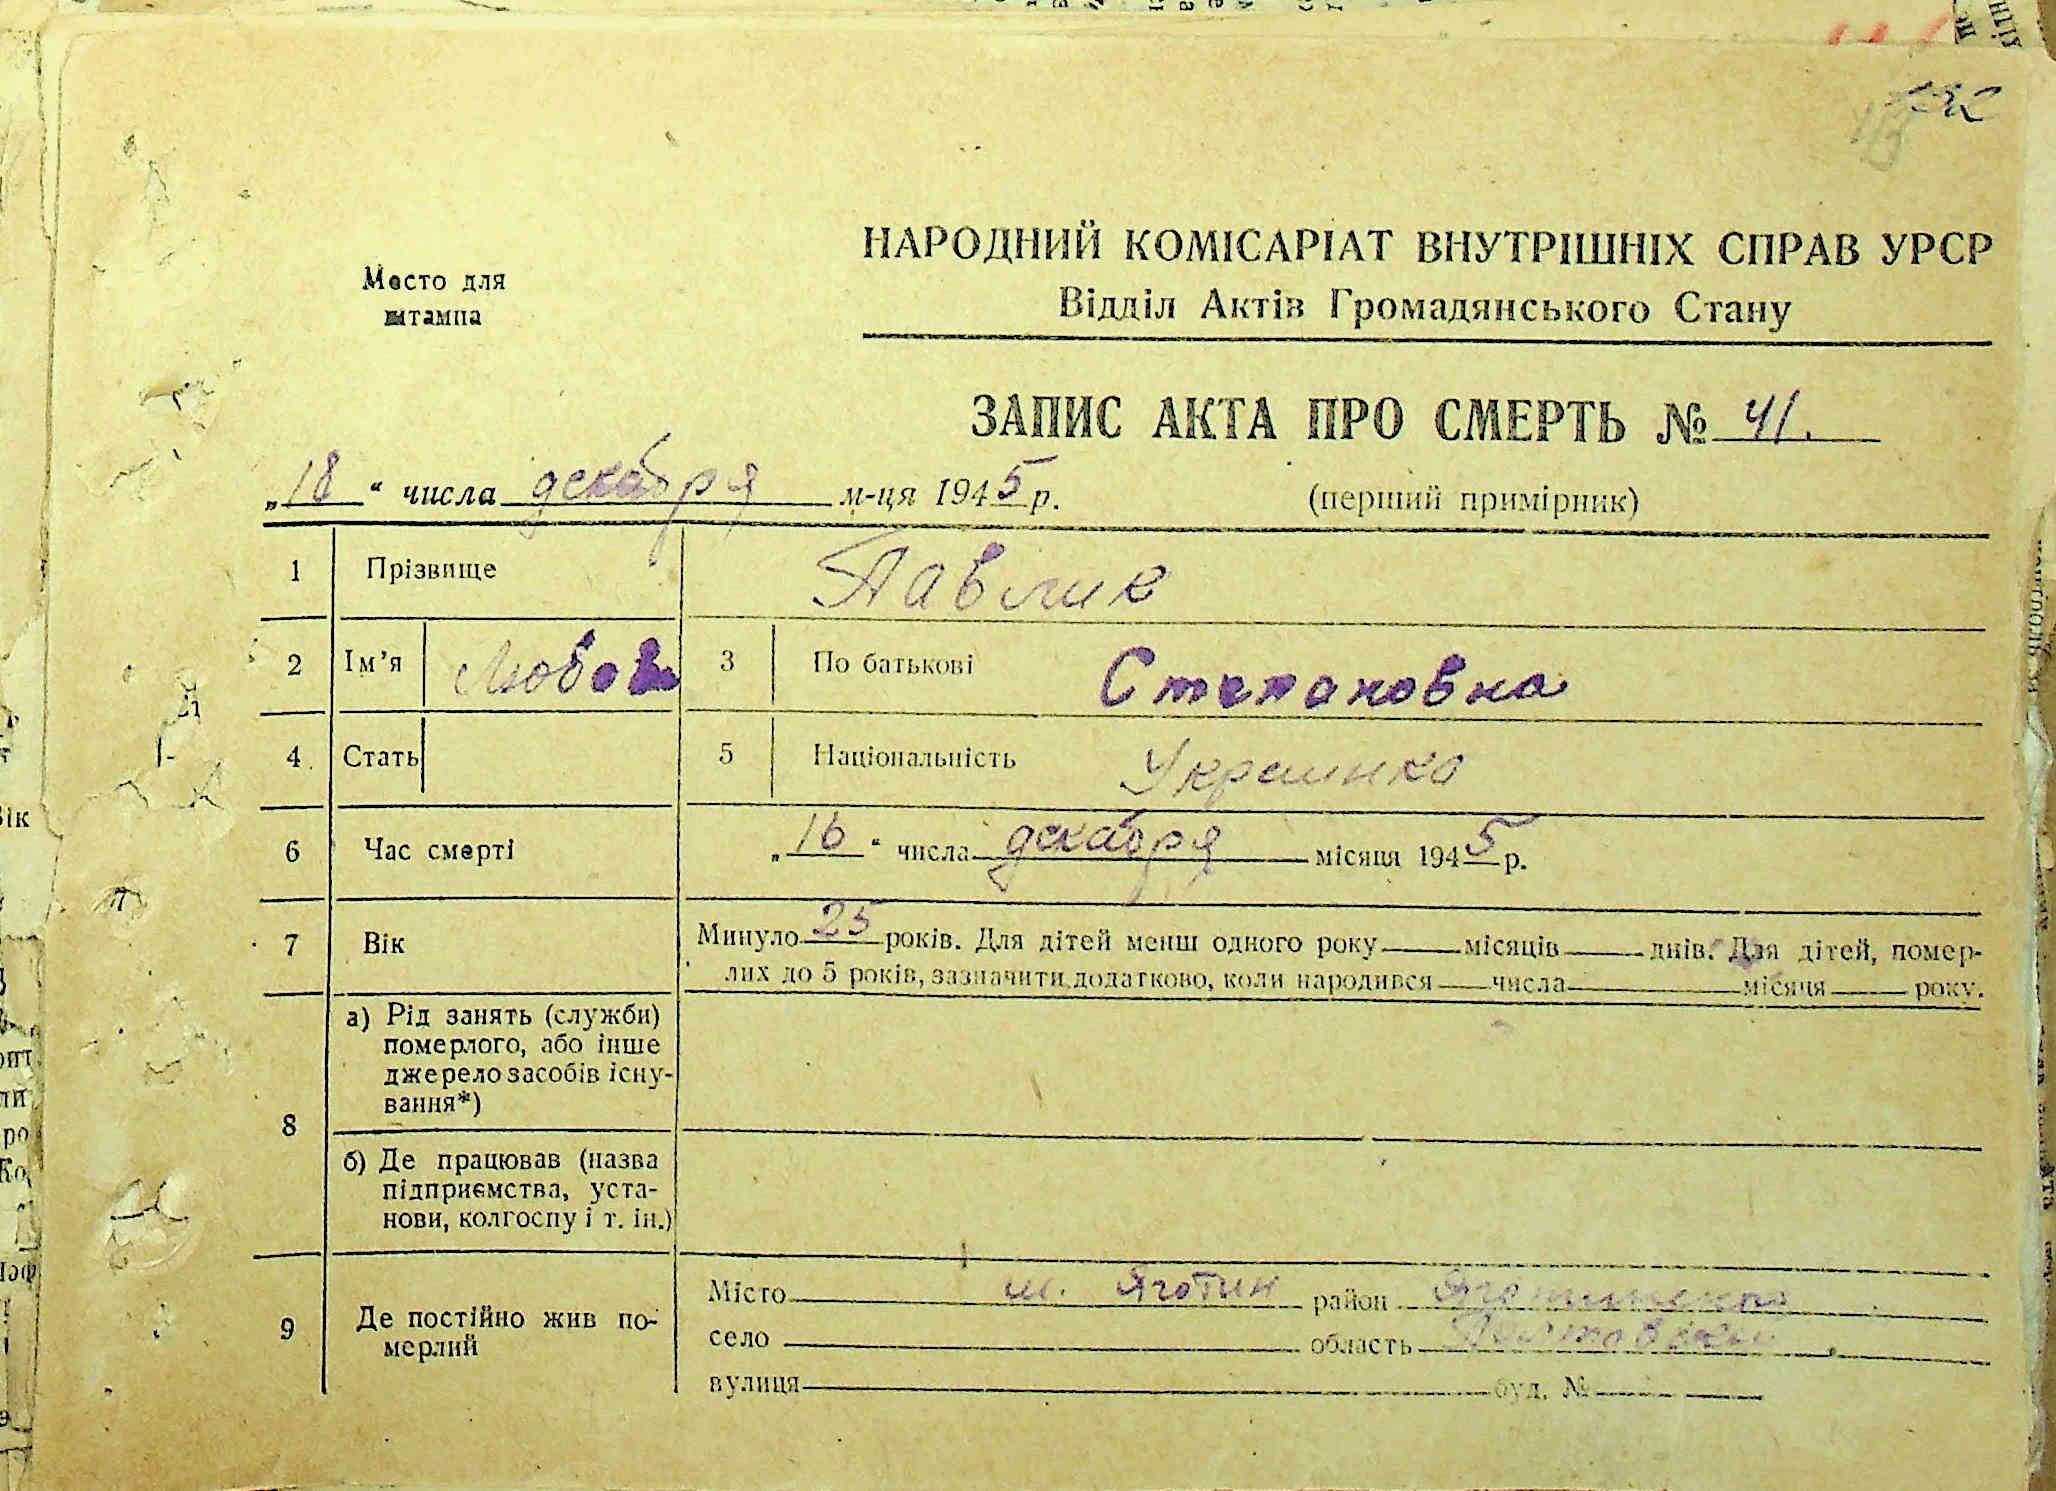 НАРОДНИЙ КОМІСАРІАТ ВНУТРІШНІХ СПРАВ УРСР
Место для
штампа
Відділ Актів Громадянського Стану
ЗАПИС АКТА ПРО СМЕРТЬ № 41.
„18“ числа декабря м-ця 1945 р.
(перший примірник)
1 Прізвище Павлик
2 Ім'я Любов 3 По батькові Степановна
4 Стать 5 Національність Украинка
6 Час смерті „16“ числа декабря місяця 1945 р.
7 Вік Минуло 25 років. Для дітей менш одного року місяців днів. Для дітей, помер-
лих до 5 років, зазначити додатково, коли народився числа місяця року.
8 а) Рід занять (служби)
померлого, або інше
джерело засобів існу-
вання*)
б) Де працював (назва
підприємства, уста-
нови, колгоспу і т. ін.)
9 Де постійно жив по-
мерлий
Місто м. Яготин район
село область
вулиця буд. №